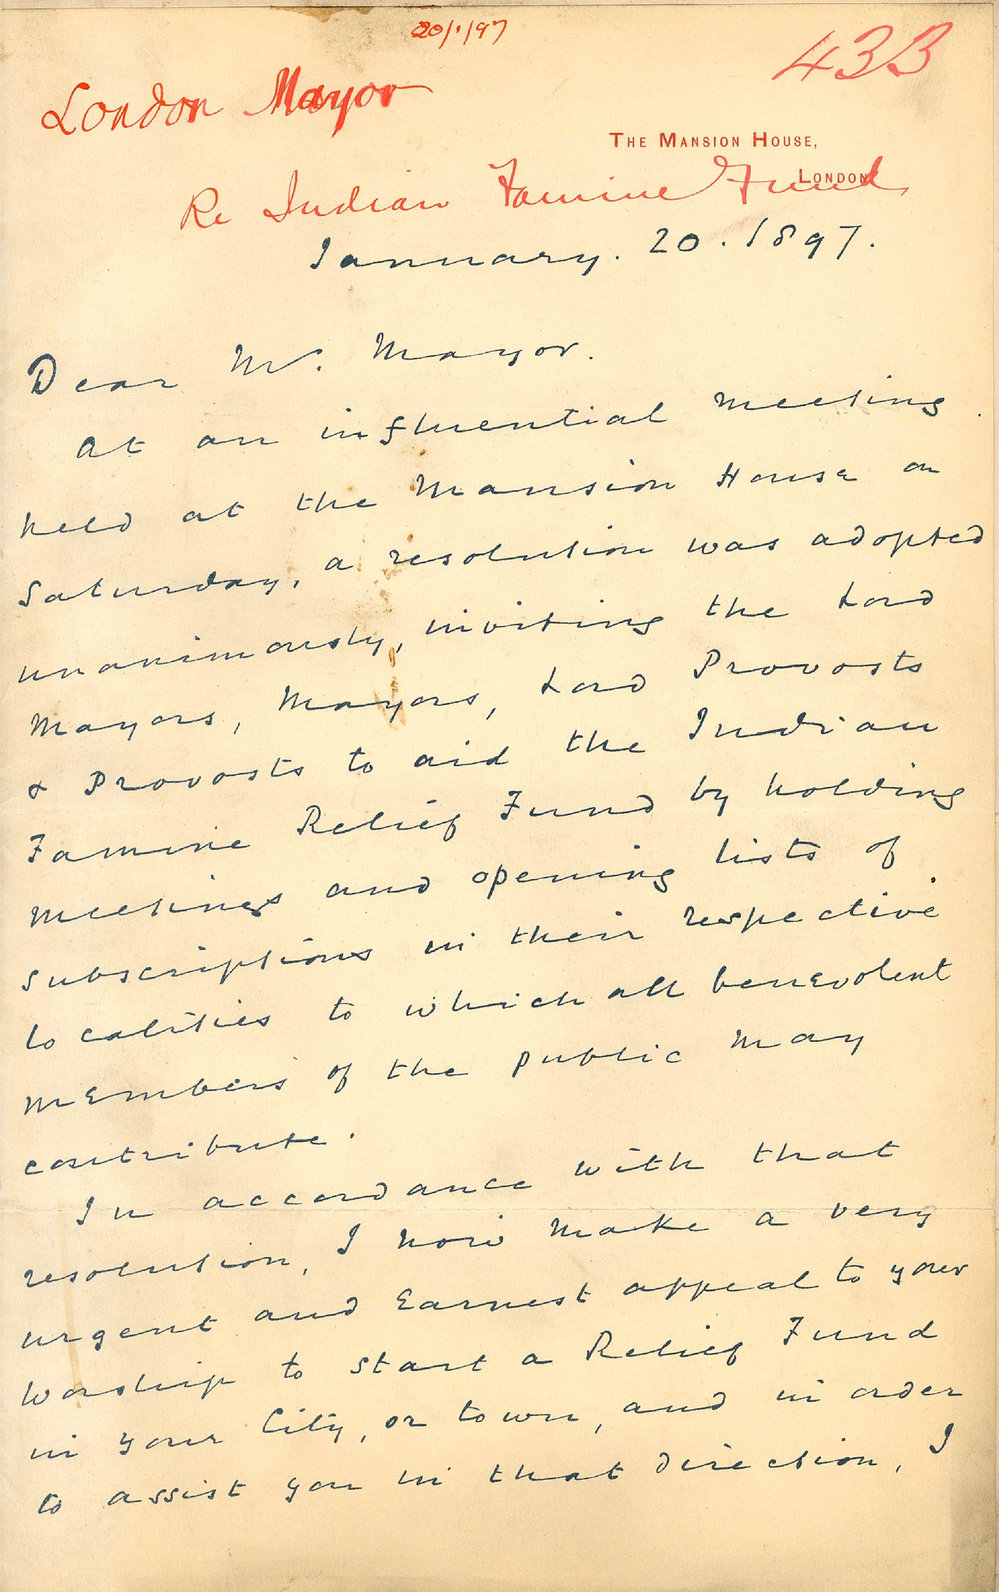 20/1/97
43B
London Mayor
THE MANSION HOUSE,
LONDON
Re Indian Famine Fund
January. 20. 1897.
Dear Mr. Mayor.
At an influential meeting
held at the Mansion House on
Saturday, a resolution was adopted
unanimously, inviting the Lord
Mayors, Mayors, Lord Provosts
& Provosts to aid the Indian
Famine Relief Fund by holding
meetings and opening lists of
subscriptions in their respective
localities to which all benevolent
members of the public may
contribute.
In accordance with that
resolution, I now make a very
urgent and earnest appeal to your
Worship to start a Relief Fund
in your City, or town, and in order
to assist you in that direction, I